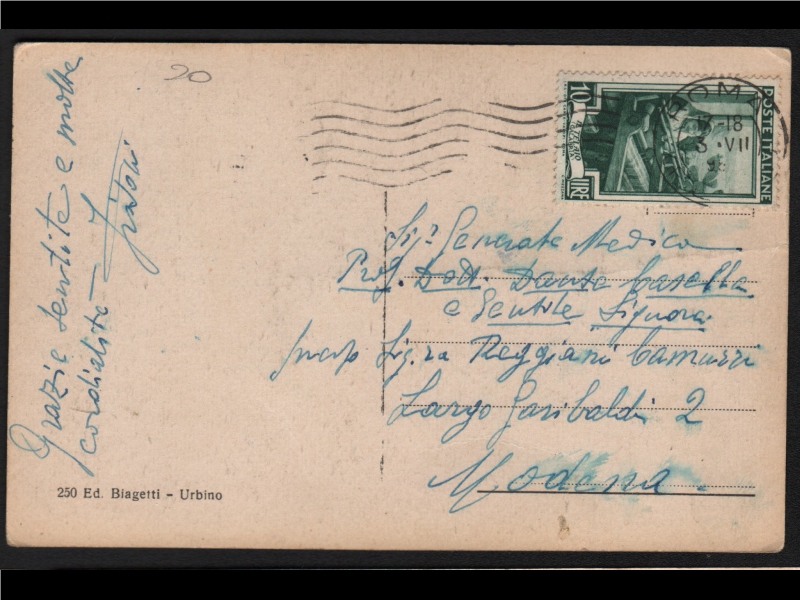 20
Grazie sentite e molte
cordialità
10
LIRE
POSTE ITALIANE
ROMA
18
VII
Sig. Generale Medico
Prof. Dott. Dante Casella
e Gentile Signora
presso Sig.ra Reggiani Camurri
Largo Garibaldi 2
Modena
250 Ed. Biagetti - Urbino